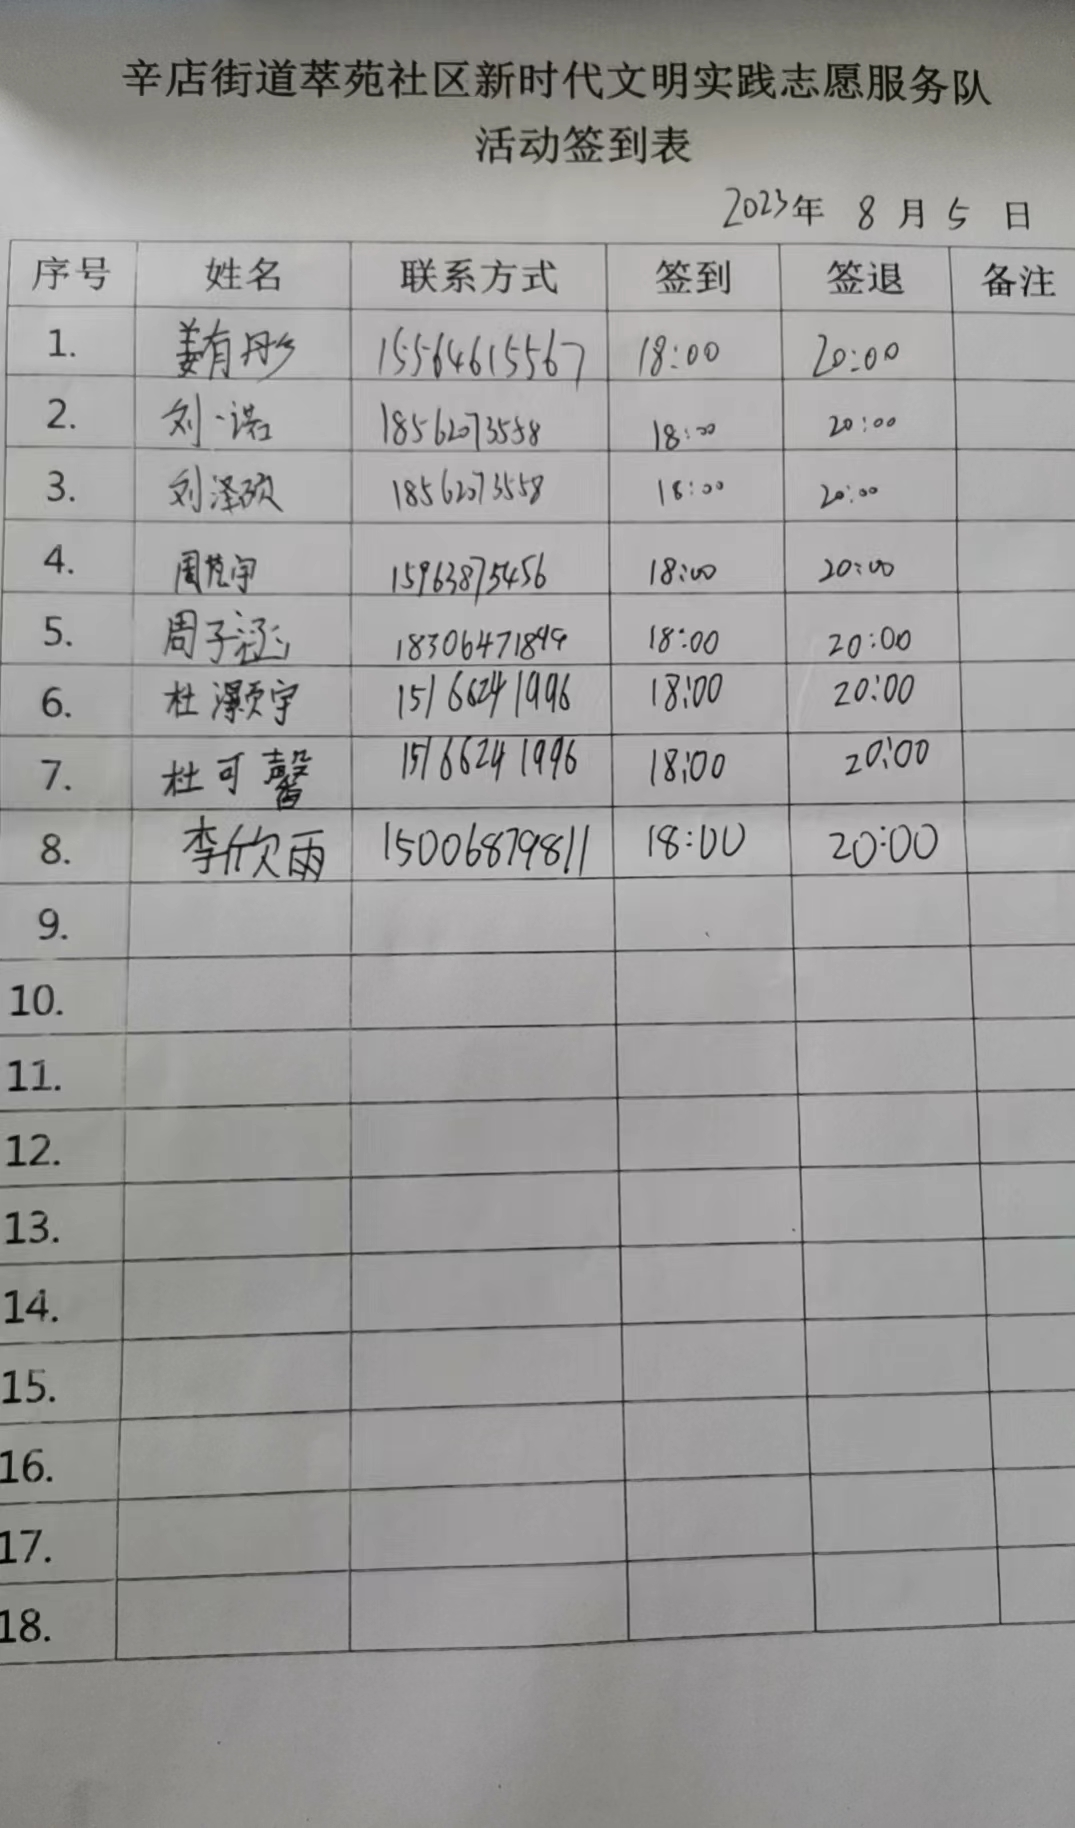 辛店街道萃苑社区新时代文明实践志愿服务队
活动签到表
2023年 8 月 5 日
序号 姓名 联系方式 签到 签退 备注
1. 姜有彤 15564615567 18:00 20:00
2. 刘一诺 18562073558 18:00 20:00
3. 刘泽硕 18562073558 18:00 20:00
4. 周芃宇 15963875456 18:00 20:00
5. 周子涵 18306471899 18:00 20:00
6. 杜灏宇 15166241996 18:00 20:00
7. 杜可馨 15166241996 18:00 20:00
8. 李欣雨 15006879811 18:00 20:00
9.
10.
11.
12.
13.
14.
15.
16.
17.
18.